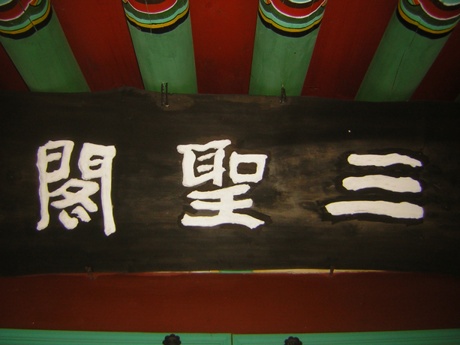 三聖閣